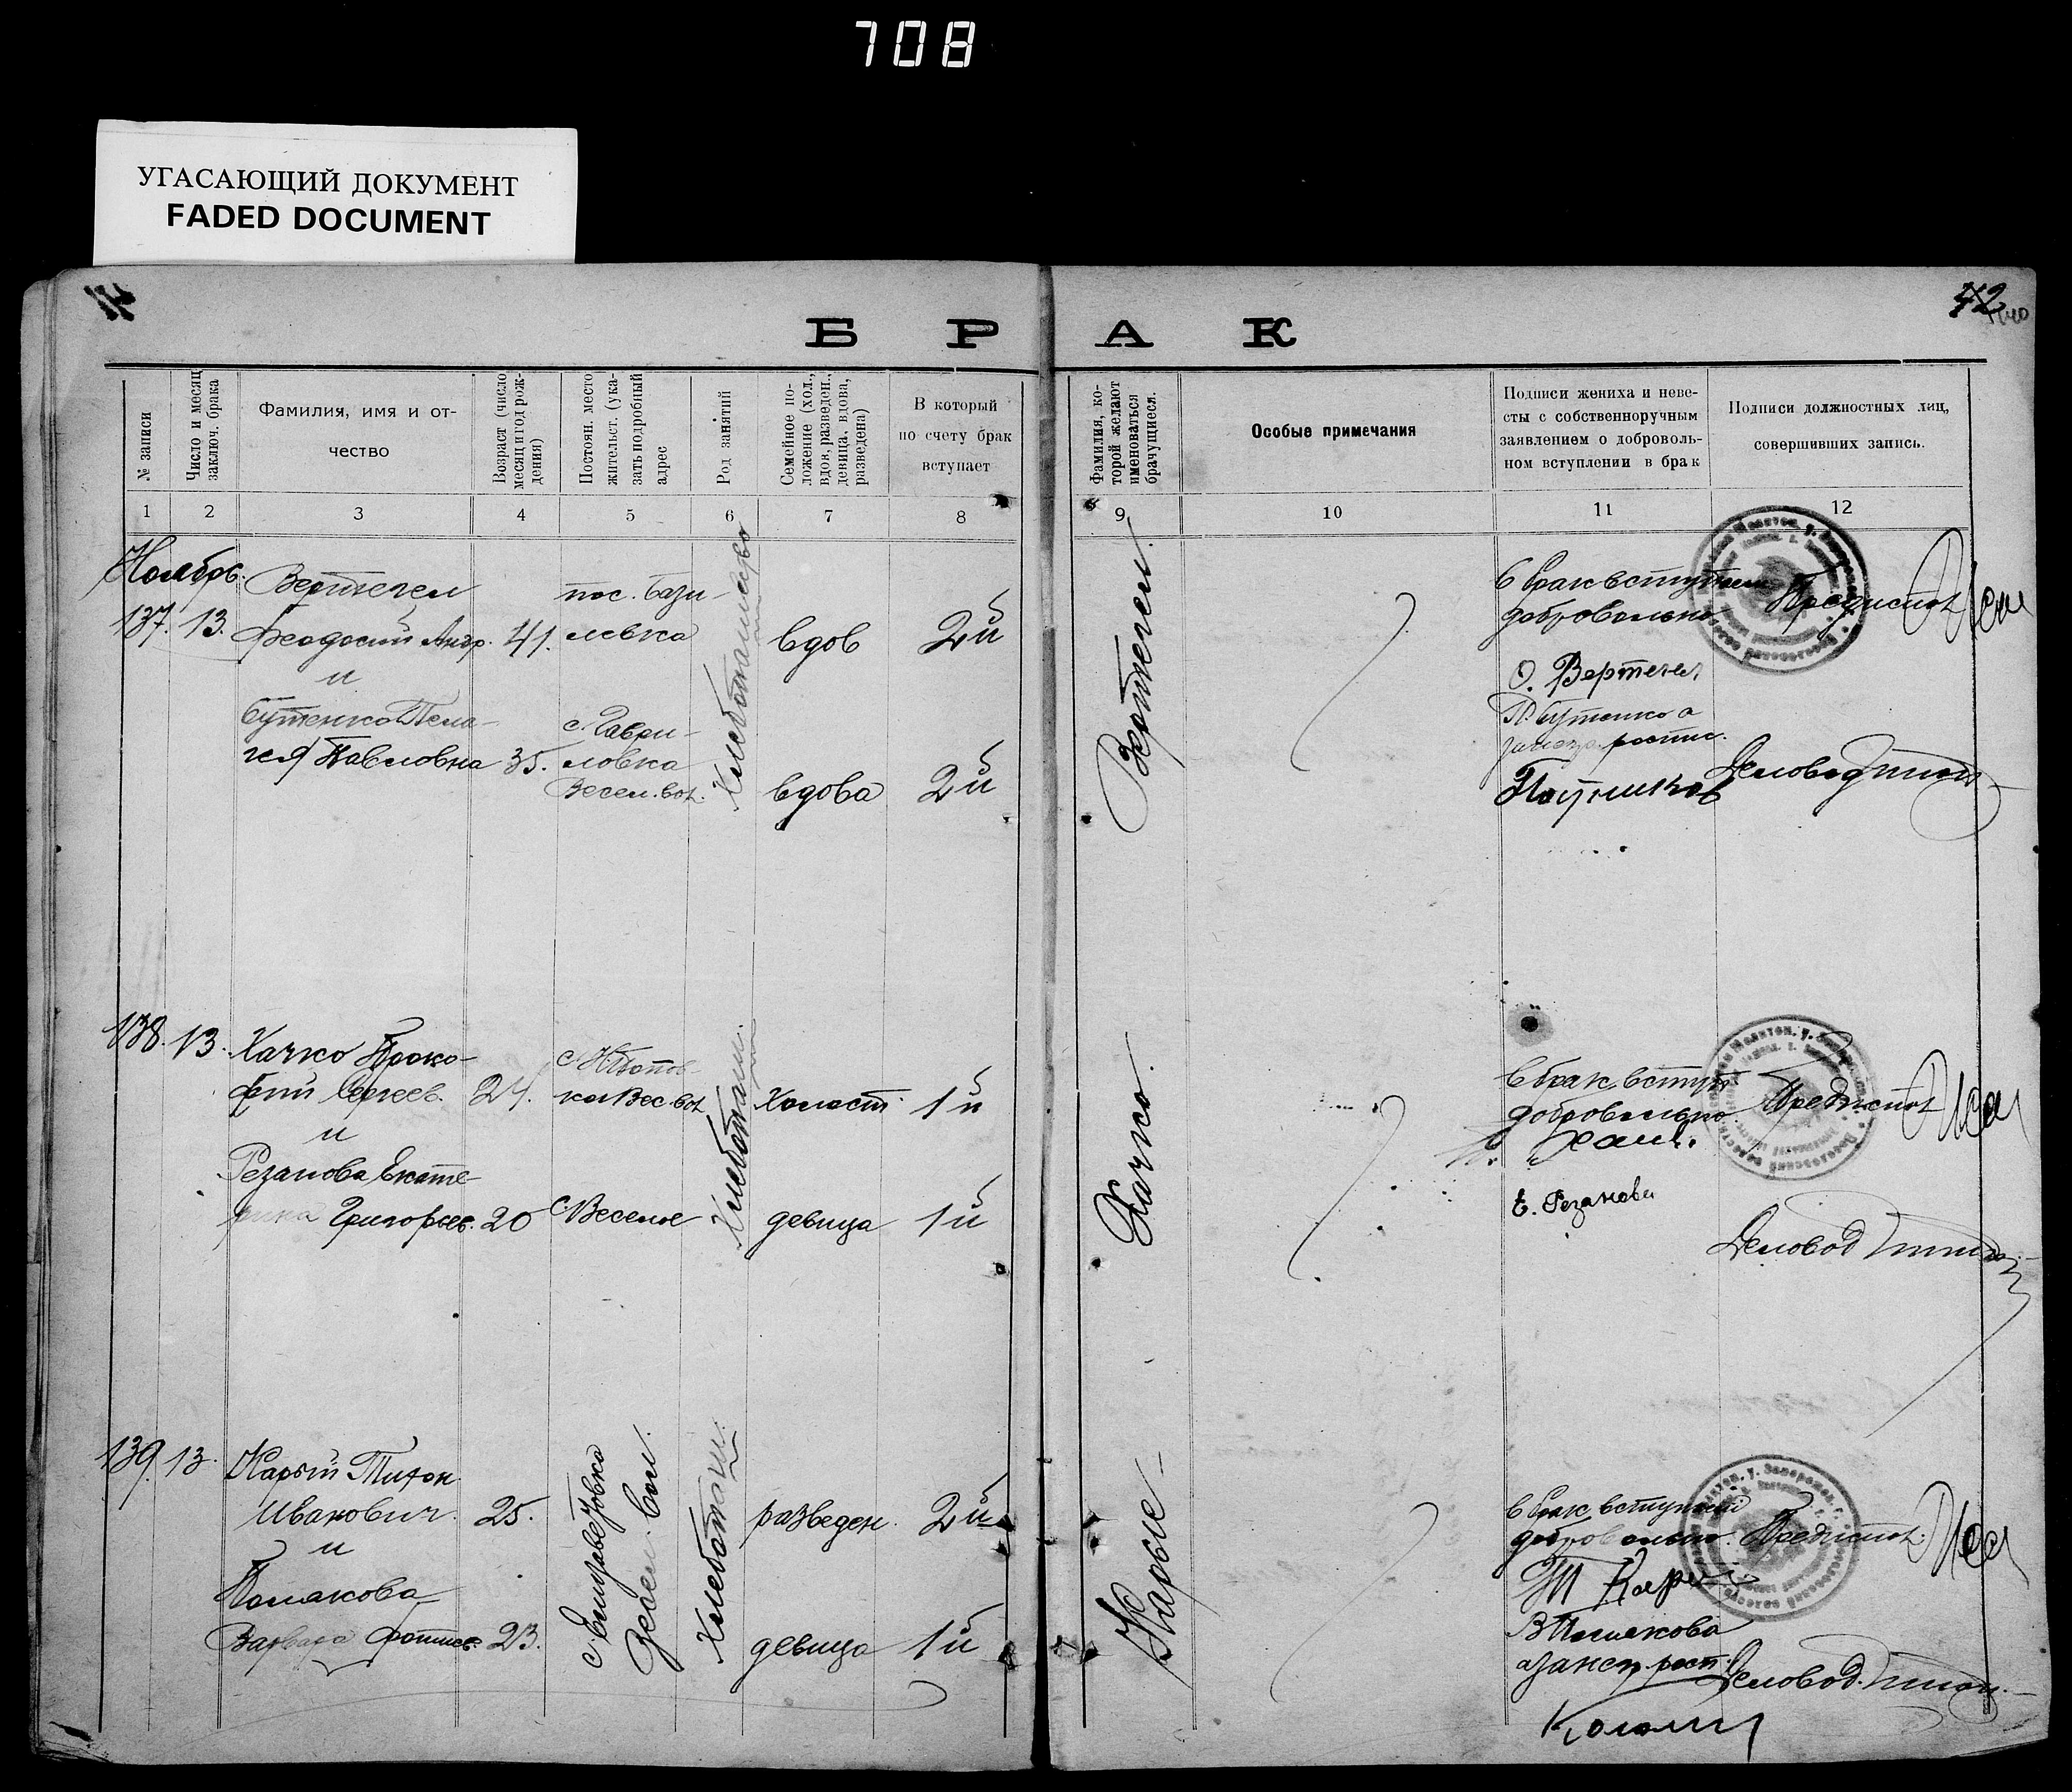 708
УГАСАЮЩИЙ ДОКУМЕНТ
FADED DOCUMENT
41
42
Б Р А К
№ записи
Число и месяц
заключ. брака
Фамилия, имя и от-
чество
Возраст (число
месяц и год рож-
дения)
Постоян. место
жительст. (ука-
зать подробный
адрес
Род занятий
Семейное по-
ложение (хол.,
вдов, разведен.,
девица, вдова,
разведена)
В который
по счету брак
вступает
Фамилия, ко-
торой желают
именоваться
брачущиеся.
Особые примечания
Подписи жениха и неве-
сты с собственноручным
заявлением о доброволь-
ном вступлении в брак
Подписи должностных лиц,
совершивших запись.
1 2 3 4 5 6 7 8 9 10 11 12
Ноябрь
137. 13.
Вертегел
Феодосий Андр. 41.
и
Бутенко Пела-
гея Павловна 35.
пос. Бази-
левка
с. Гаври-
ловка
Весел. вол.
Хлебопашество
вдов 2й
вдова 2й
Вертегел.
В брак вступаем
добровольно.
О. Вертегел
П. Бутенко а
за негр. роспис.
Предиспол
Деловод
138. 13.
Хачко Проко-
фий Сергеев. 24.
и
Резанова Екате-
рина Григорьев. 20
ка Вес. вол
с. Веселое
Хлебопаш.
Холост 1й
девица 1й
Хачко.
В брак вступ
добровольно
Е. Резанова
Предиспол
Деловод
139. 13.
Карый Тихон
Иванович. 25.
и
Полякова
Варвара Фотиев. 23.
с. Елизаветовка
Весел. вол.
Хлебопаш.
разведен. 2й
девица 1й
Карые
В брак вступаем
добровольно.
Т Кары
В Полякова
а за негр. росп.
Предиспол.
Деловод.